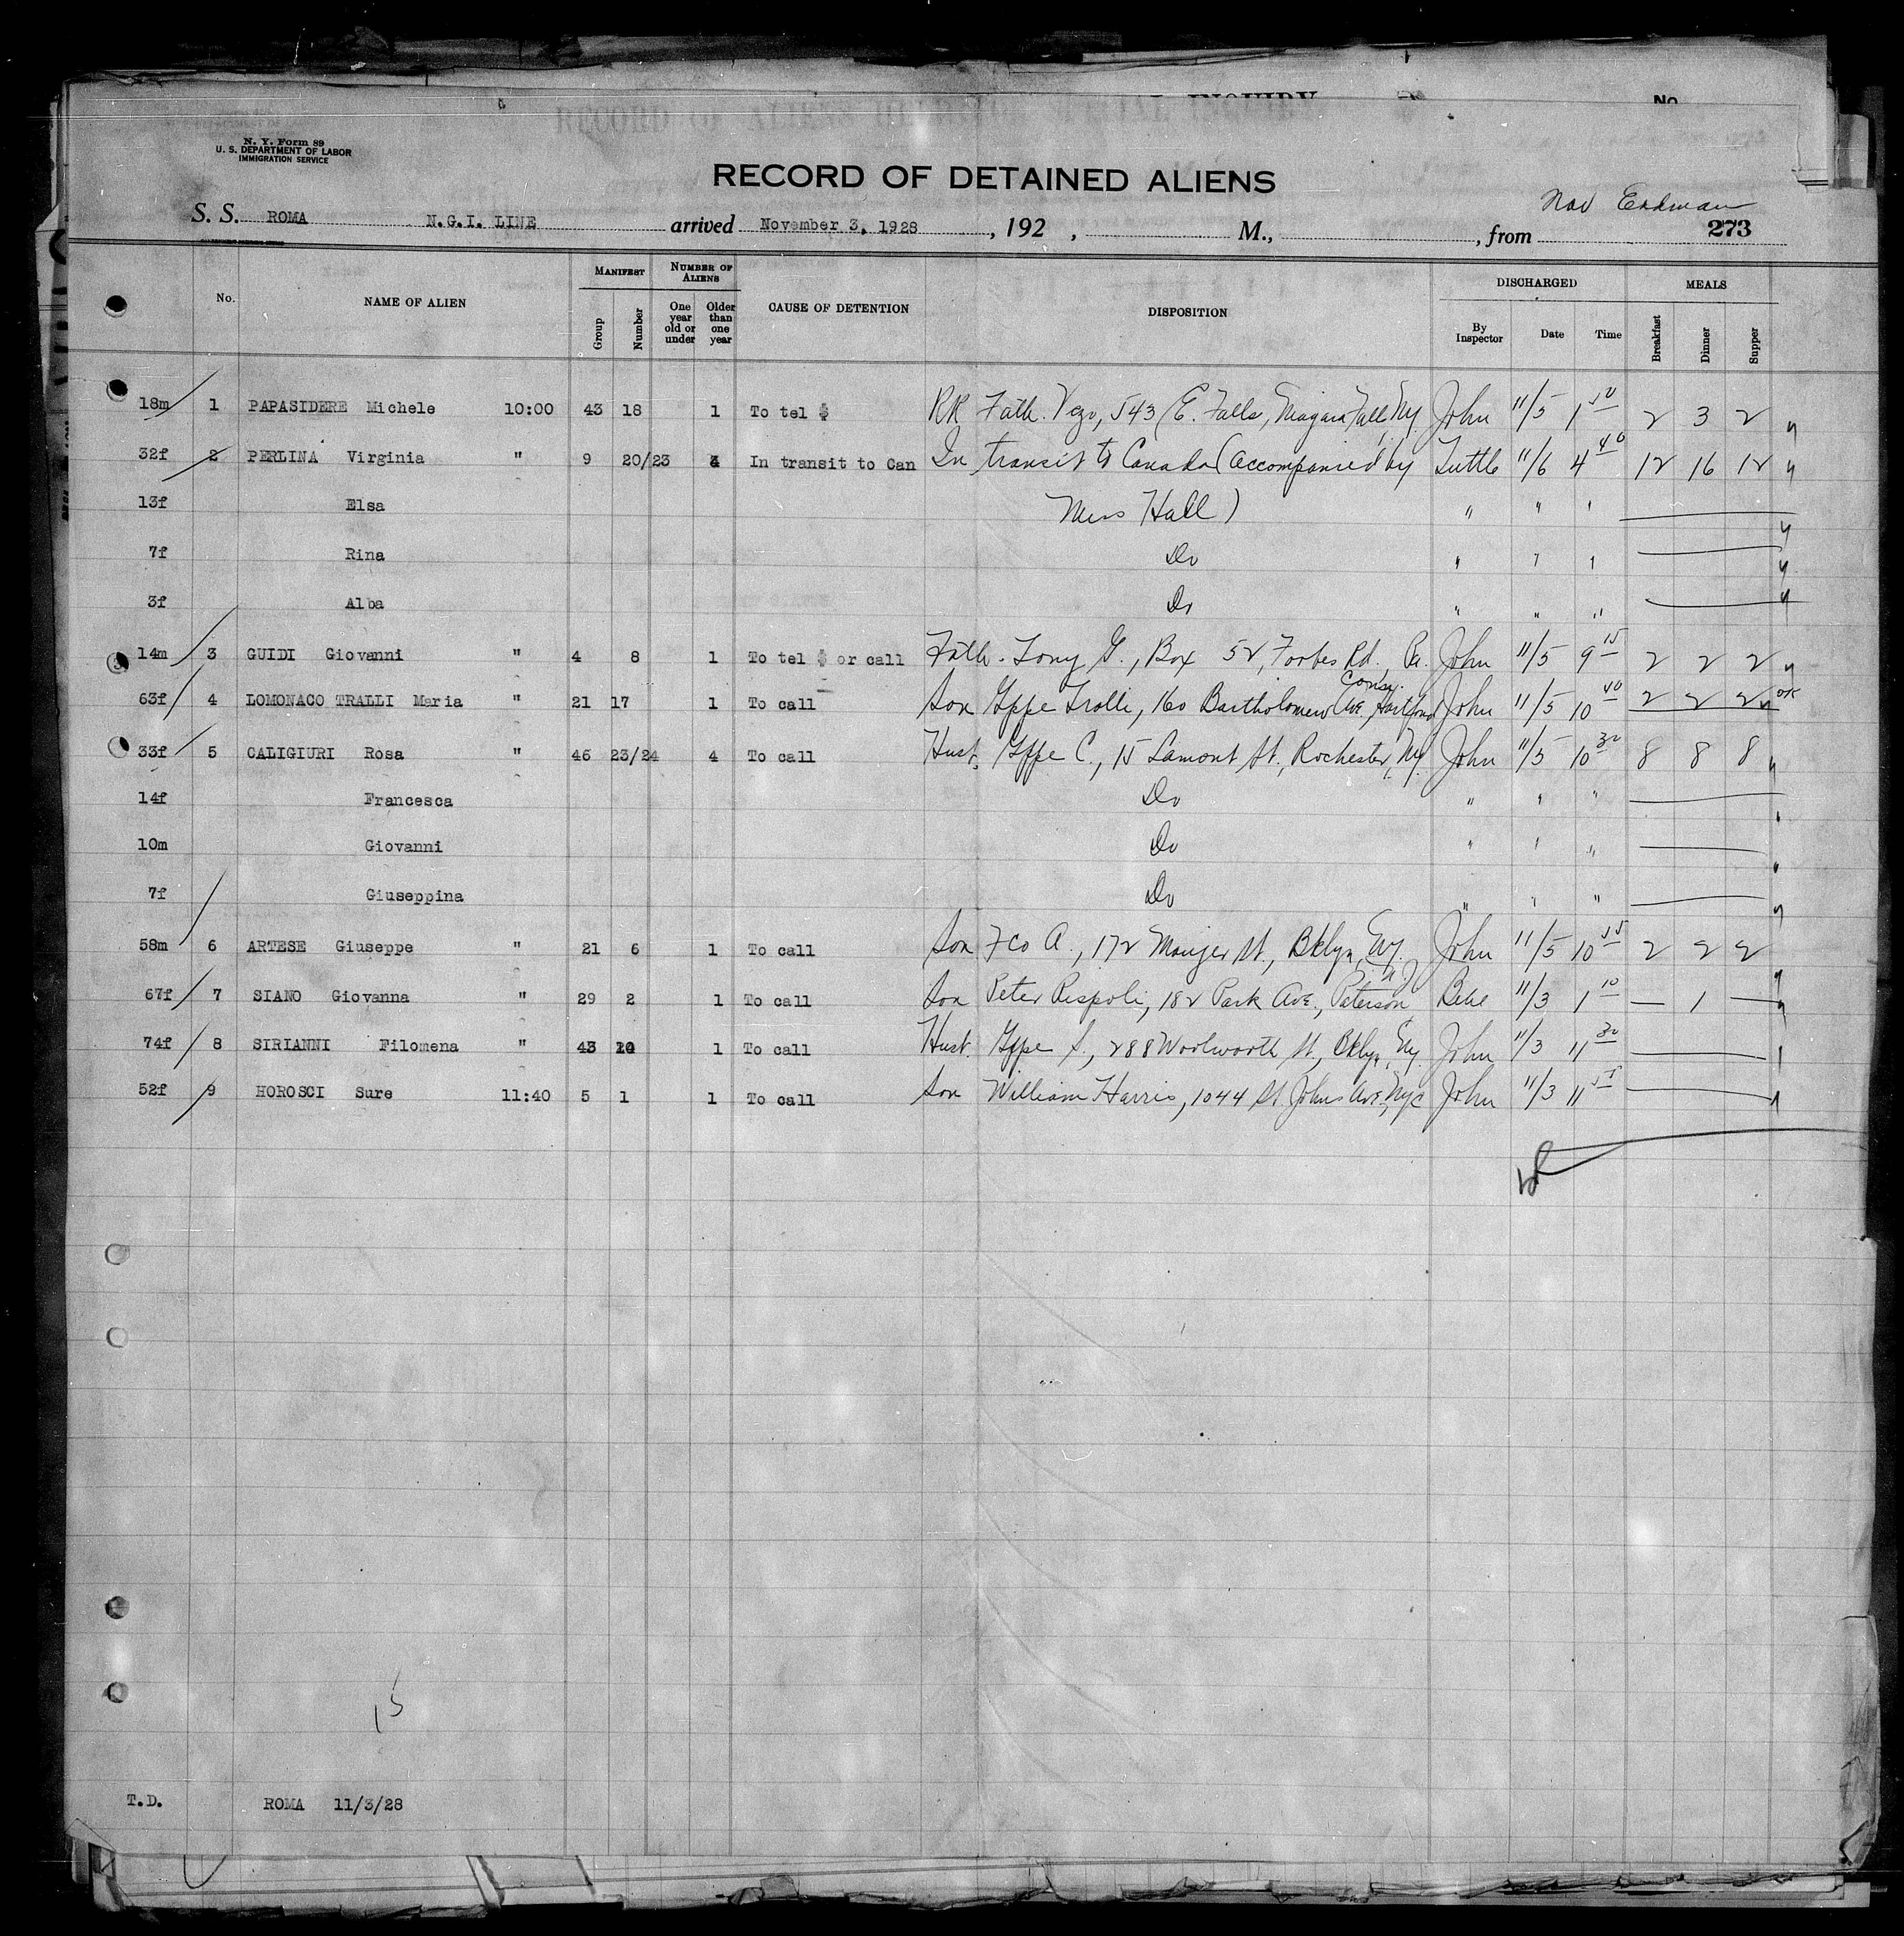 No.
N. Y. Form 89
U. S. DEPARTMENT OF LABOR
IMMIGRATION SERVICE
RECORD OF DETAINED ALIENS
S. S. ROMA N.G.I. LINE arrived November 3, 1928, 192 , M., , from 273
No. NAME OF ALIEN MANIFEST Group Number NUMBER OF ALIENS One year old or under Older than one year CAUSE OF DETENTION DISPOSITION DISCHARGED By Inspector Date Time MEALS Breakfast Dinner Supper
18m 1 PAPASIDERE Michele 10:00 43 18 1 To tel $ RR Fath. 543 E. Falls, Niagara Falls, NY John 11/5 1 50 2 3 2
32f 2 PERLINA Virginia " 9 20/23 4 In transit to Can In transit to Canada (accompanied by Tuttle 11/6 4 40 12 16 12
13f Elsa Miss Hall) " " "
7f Rina Do " " "
3f Alba Do " " "
14m 3 GUIDI Giovanni " 4 8 1 To tel $ or call Fath. Tony G., Box 52, Forbes Rd., Pa. John 11/5 9 15 2 2 2
63f 4 LOMONACO TRALLI Maria " 21 17 1 To call Son Gppe Trolli, 160 Bartholomew Ave., Hartford Conn. John 11/5 10 40 2 2 2 OK
33f 5 CALIGIURI Rosa " 46 23/24 4 To call Husb. Gppe C., 15 Lamont St., Rochester, NY John 11/5 10 30 8 8 8
14f Francesca Do " " "
10m Giovanni Do " " "
7f Giuseppina Do " " "
58m 6 ARTESE Giuseppe " 21 6 1 To call Son Fco A., 172 Maujer St., Bklyn, NY. John 11/5 10 55 2 2 2
67f 7 SIANO Giovanna " 29 2 1 To call Son Peter Rispoli, 182 Park Ave., Paterson NJ 11/3 1 10 — 1 —
74f 8 SIRIANNI Filomena " 43 1 To call Husb. Gppe S., 288 Woolworth St., Bklyn, NY John 11/3 11 30
52f 9 HOROSCI Sure 11:40 5 1 1 To call Son William Harris, 1044 St Johns Ave, NYC John 11/3 11 55
15
T.D. ROMA 11/3/28